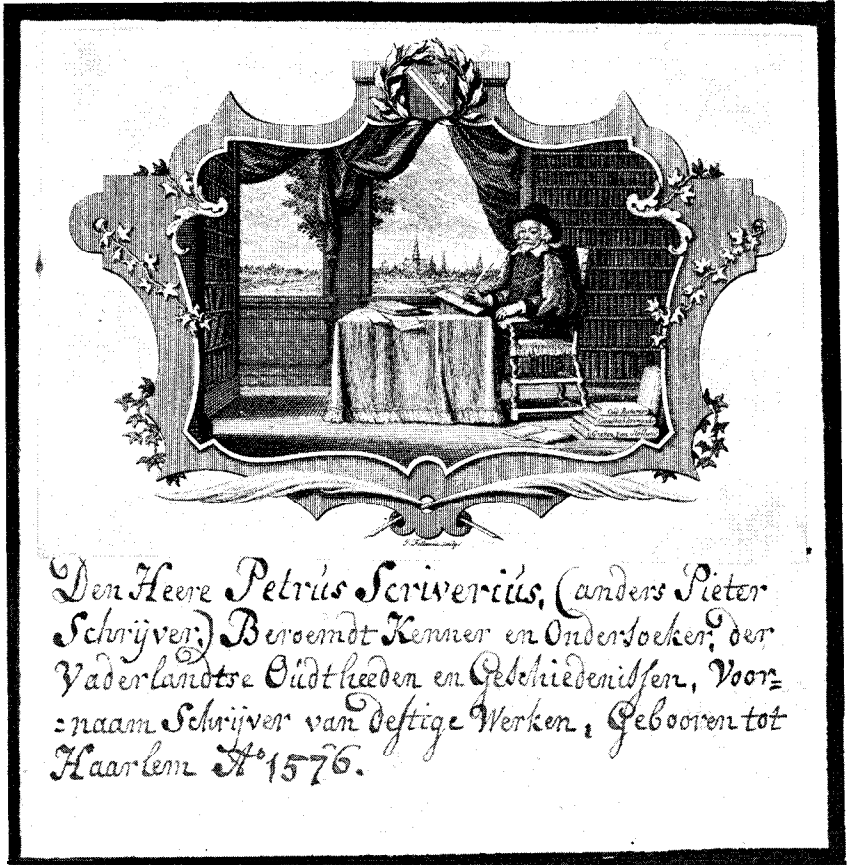 Den Heere Petrus Scriverius, (anders Pieter
Schrijver,) Beroemdt Kenner en Ondersoeker, der
Vaderlandtse Oudtheeden en Geschiedenissen, Voor=
=naam Schrijver van deftige Werken, Gebooren tot
Haarlem Aº 1576.